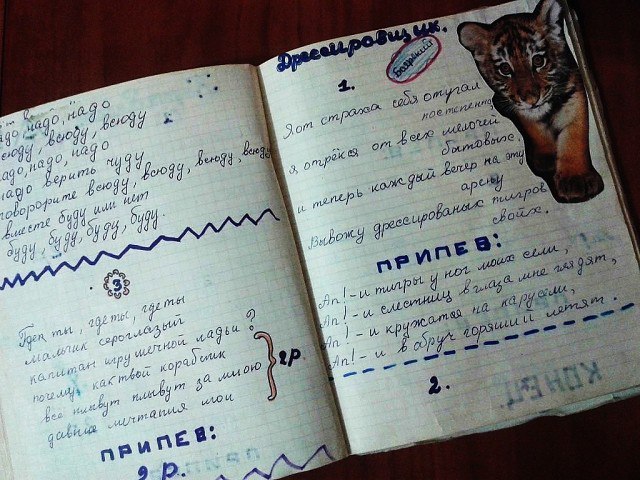 надо, надо, надо
всюду, всюду, всюду
надо, надо, надо
надо верить чуду
говорорите всюду, всюду, всюду, всюду
вместе буду или нет
буду, буду, буду, буду.
3
Где ты, где ты, где ты
мальчик сероглазый
капитан игрушечной ладьи ?
почему как твой кораблик
все плывут плывут за мною
давние мечтания мои
2 р.
ПРИПЕВ:
2 р.
Дрессировщик.
Боярский
1.
Я от страха себя отучал
постепенно
я отрёкся от всех мелочей
бытовых
и теперь каждый вечер на эту
арену
Вывожу дрессированых тигров
своих.
ПРИПЕВ:
Ап! - и тигры у ног моих сели,
Ап! - и с лестниц в глаза мне глядят,
Ап! - и кружатся на карусели,
Ап! - и в обруч горящий летят.
2.
КОНЕЦ